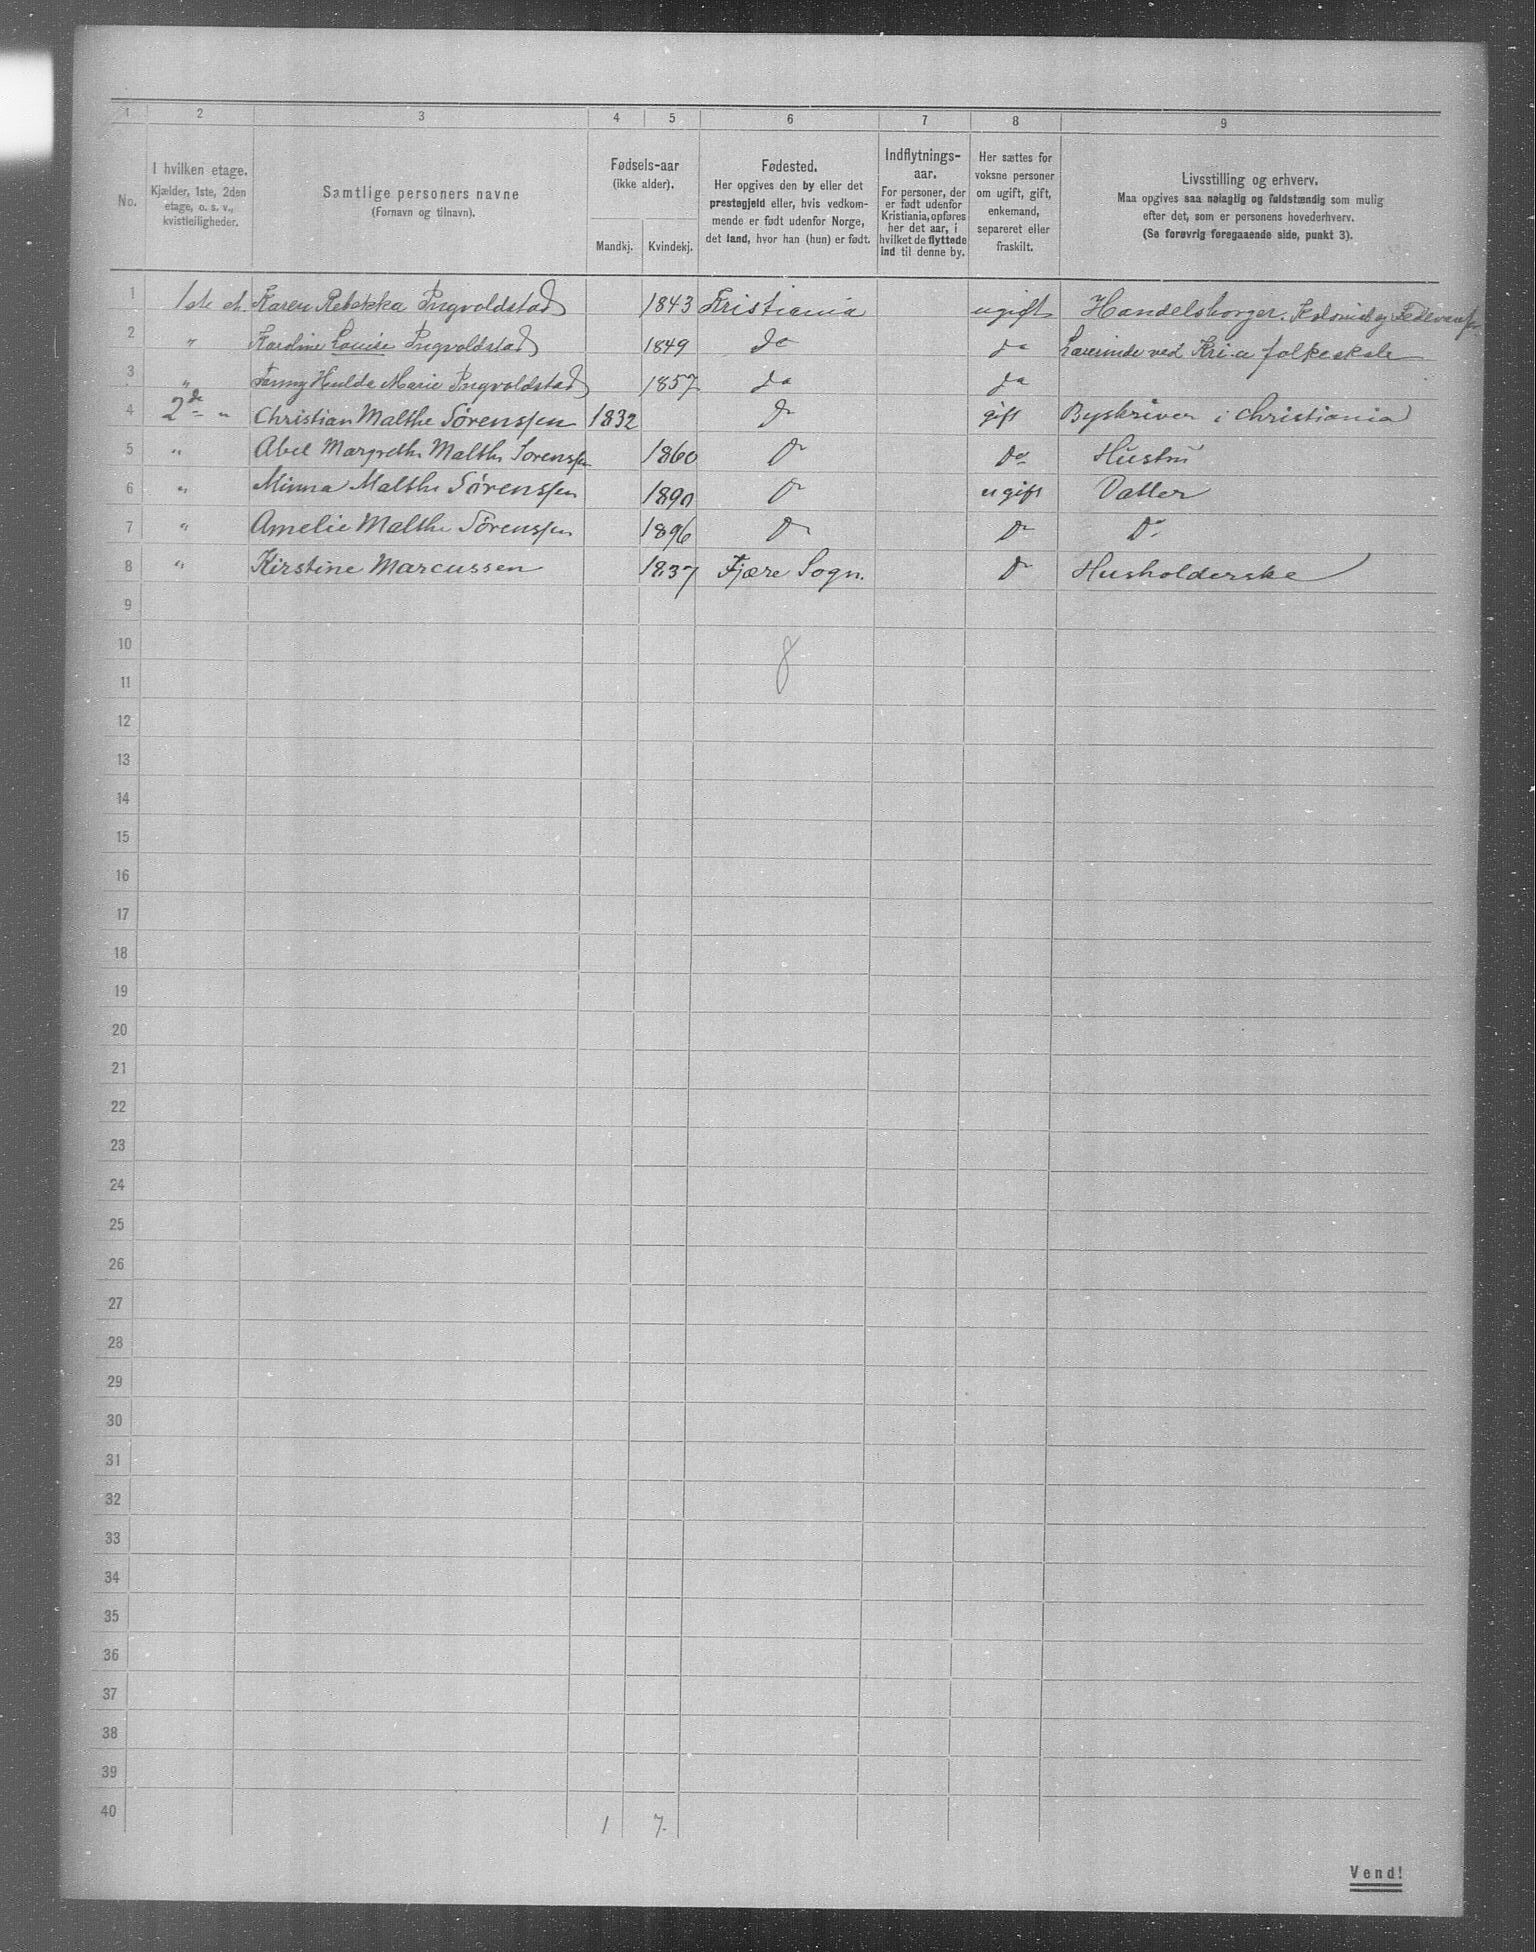 1 2 3 4 5 6 7 8 9
No.
I hvilken etage.
Kjælder, 1ste, 2den
etage, o. s. v.,
kvistleiligheder.
Samtlige personers navne
(Fornavn og tilnavn).
Fødsels-aar
(ikke alder).
Mandkj. Kvindekj.
Fødested.
Her opgives den by eller det
prestegjeld eller, hvis vedkom-
mende er født udenfor Norge,
det land, hvor han (hun) er født.
Indflytnings-
aar.
For personer, der
er født udenfor
Kristiania, opføres
her det aar, i
hvilket de flyttede
ind til denne by.
Her sættes for
voksne personer
om ugift, gift,
enkemand,
separeret eller
fraskilt.
Livsstilling og erhverv.
Maa opgives saa nøiagtig og fuldstændig som mulig
efter det, som er personens hovederhverv.
(Se forøvrig foregaaende side, punkt 3).
1 1ste et. Karen Rebekka Ingvoldstad 1843 Kristiania ugift Handelsborger.
2 " Karoline Louise Ingvoldstad 1849 do do Lærerinde ved Kri.a folkeskole
3 " Fanny Hulda Marie Ingvoldstad 1857 do do
4 2de " Christian Malthe Sørenssen 1832 do gift Byskriver i Christiania
5 " Abel Margrethe Malthe Sørenssen 1860 do do Hustru
6 " Minna Malthe Sørenssen 1890 do ugift Datter
7 " Amelie Malthe Sørenssen 1896 do do do
8 " Kirstine Marcussen 1837 Fjære Sogn. do Husholderske
9
10 8
11
12
13
14
15
16
17
18
19
20
21
22
23
24
25
26
27
28
29
30
31
32
33
34
35
36
37
38
39
40 1 7.
Vend!